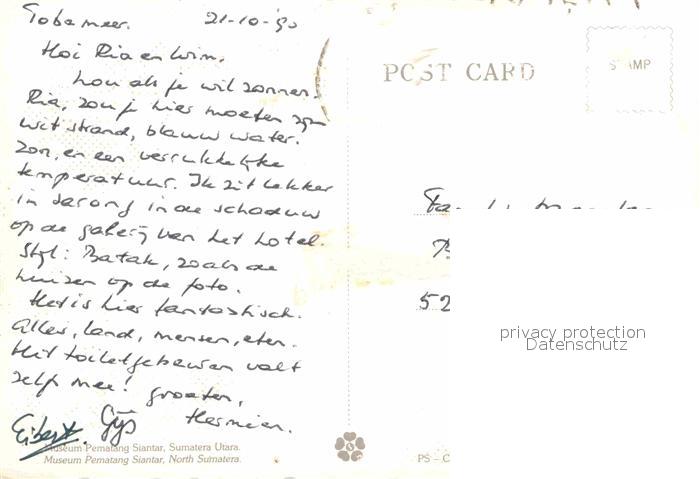 Tobameer. 21-10-'90
Hoi Ria en Wim,
Nou als je wil zonnen
Ria, zou je hier moeten zijn
wit strand, blauw water.
Zon, en een verrukkelijke
temperatuur. Ik zit lekker
in sarong in de schaduw
op de galerij van het hotel.
Stijl: Batak, zoals de
huizen op de foto.
Het is hier fantastisch.
Alles, land, mensen, eten.
Het toiletgebeuren valt
zelfs mee! groeten,
Eibert. Gijs Hermien.
Museum Pematang Siantar, Sumatera Utara.
Museum Pematang Siantar, North Sumatera.
POST CARD
STAMP
52
privacy protection
Datenschutz
PS - C